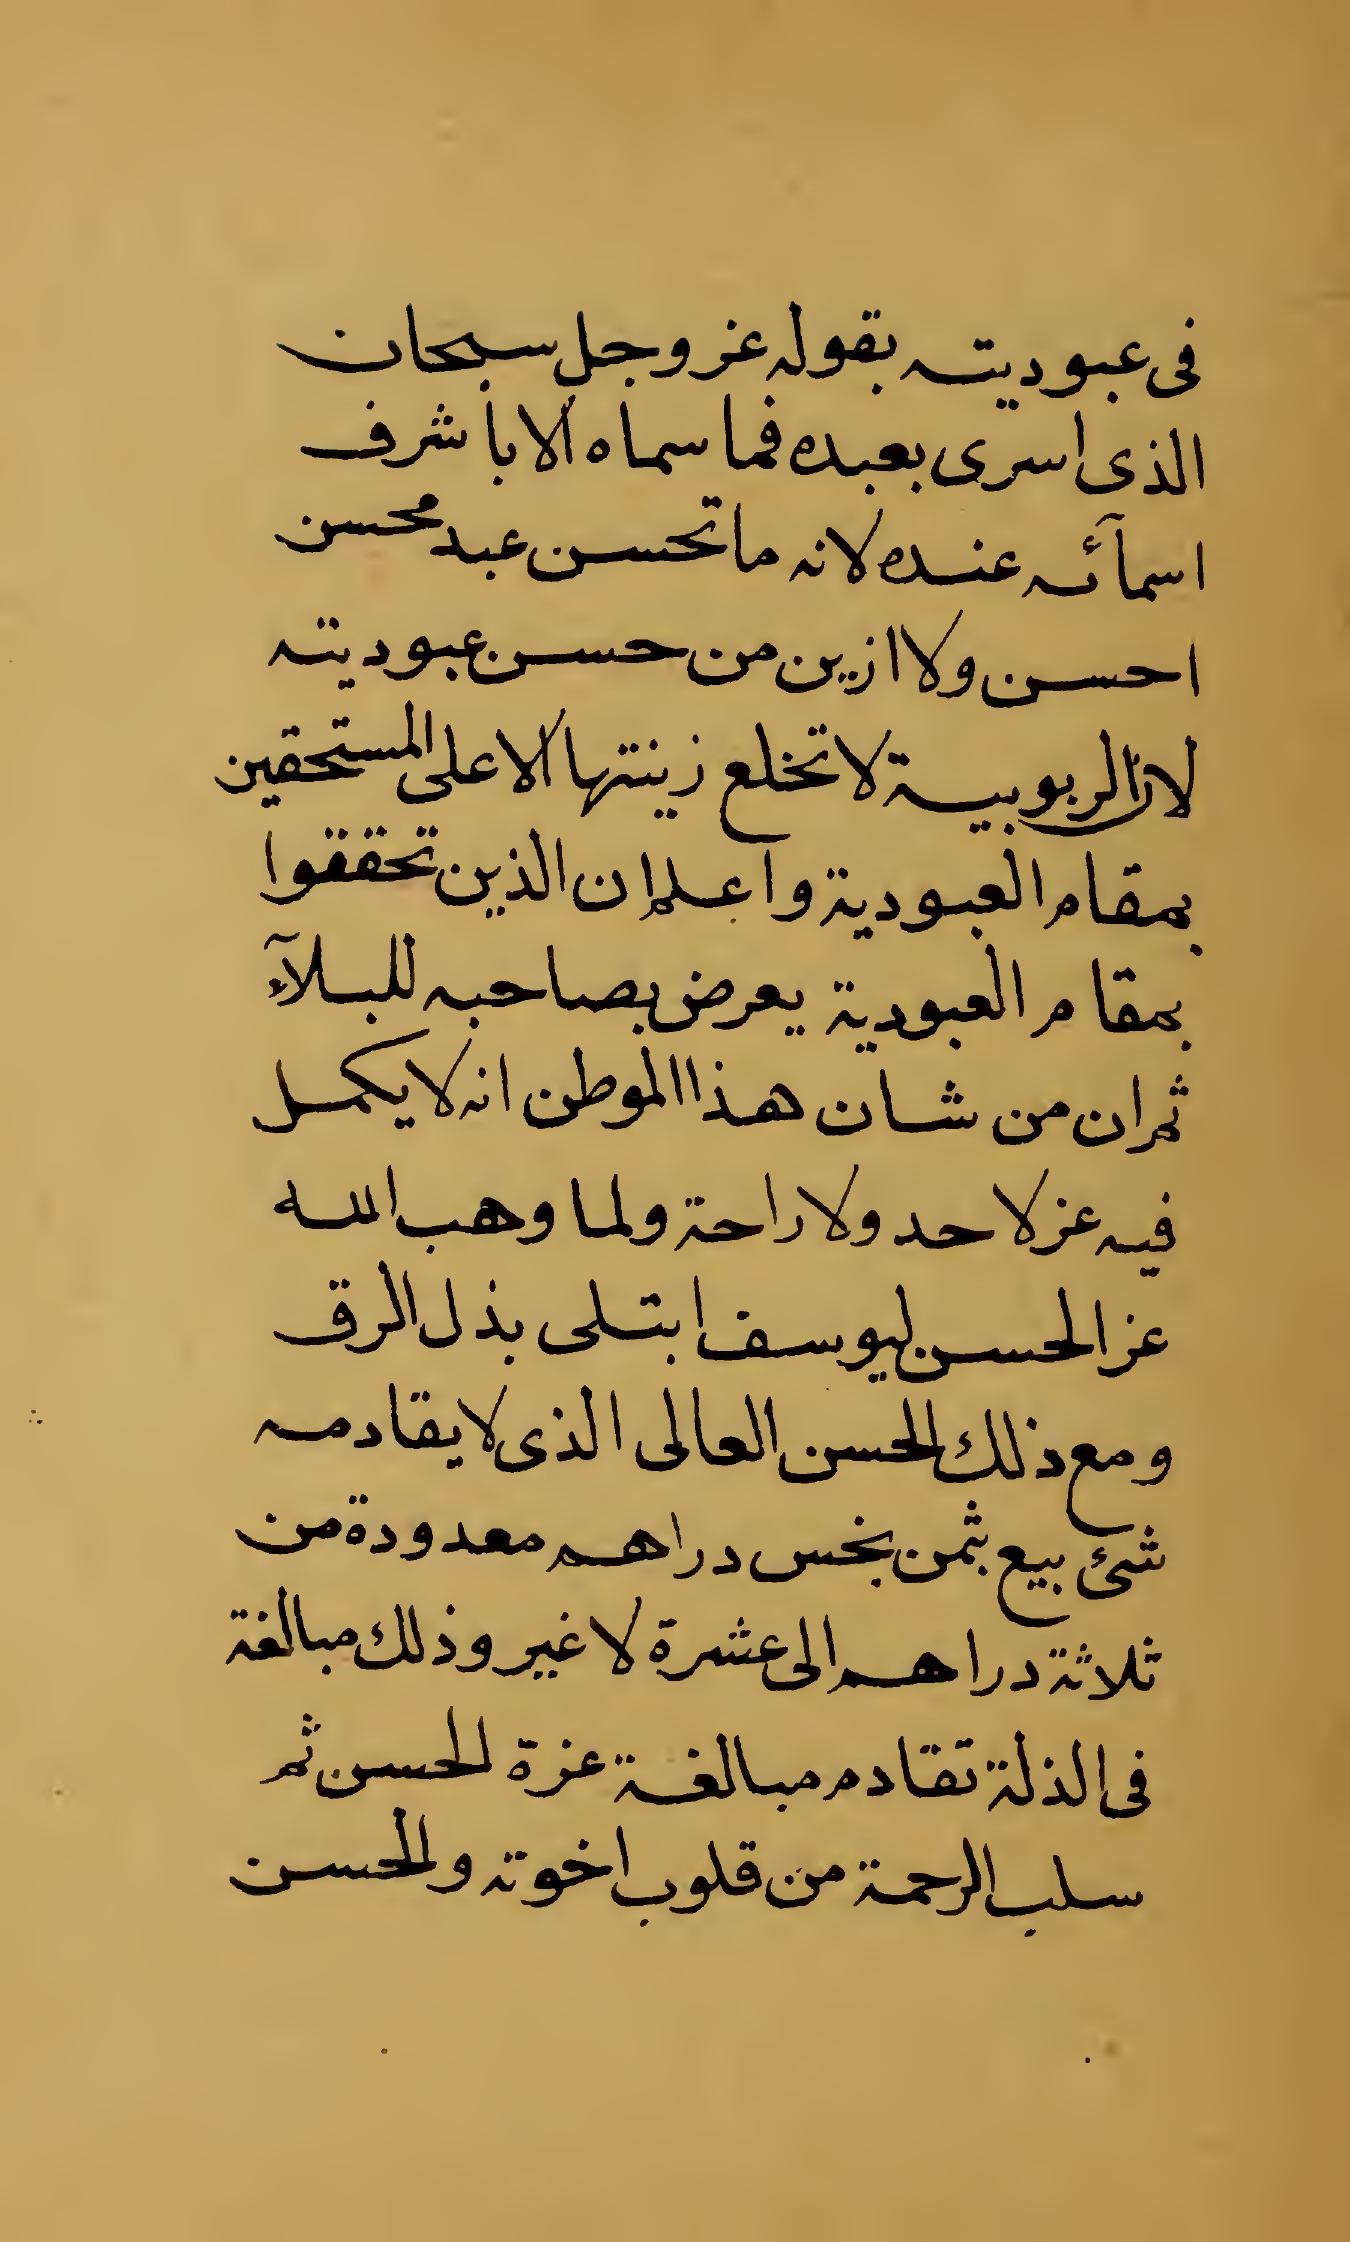 فى عبوديته بقوله عز وجل سبحان
الذى اسرى بعبده فما سماه الا باشرف
اسمآئه عنده لانه ما تحسن عبد محسن
احسن ولا ازين من حسن عبوديته
لان الربوبية لا تخلع زينتها الا على المستحقين
بمقام العبودية واعلم ان الذين تحققوا
بمقام العبودية يعرض بصاحبه للبلآء
ثم ان من شان هذا الموطن انه لا يكمل
فيه عز لاحد ولا راحة ولما وهب الله
عز الحسن ليوسف ابتلى بذل الرق
ومع ذلك الحسن العالى الذى لا يقادمه
شئ بيع بثمن بخس دراهم معدودة من
ثلاثة دراهم الى عشرة لا غير وذلك مبالغة
فى الذلة تقادم مبالغة عزة الحسن ثم
سلب الرحمة من قلوب اخوته والحسن